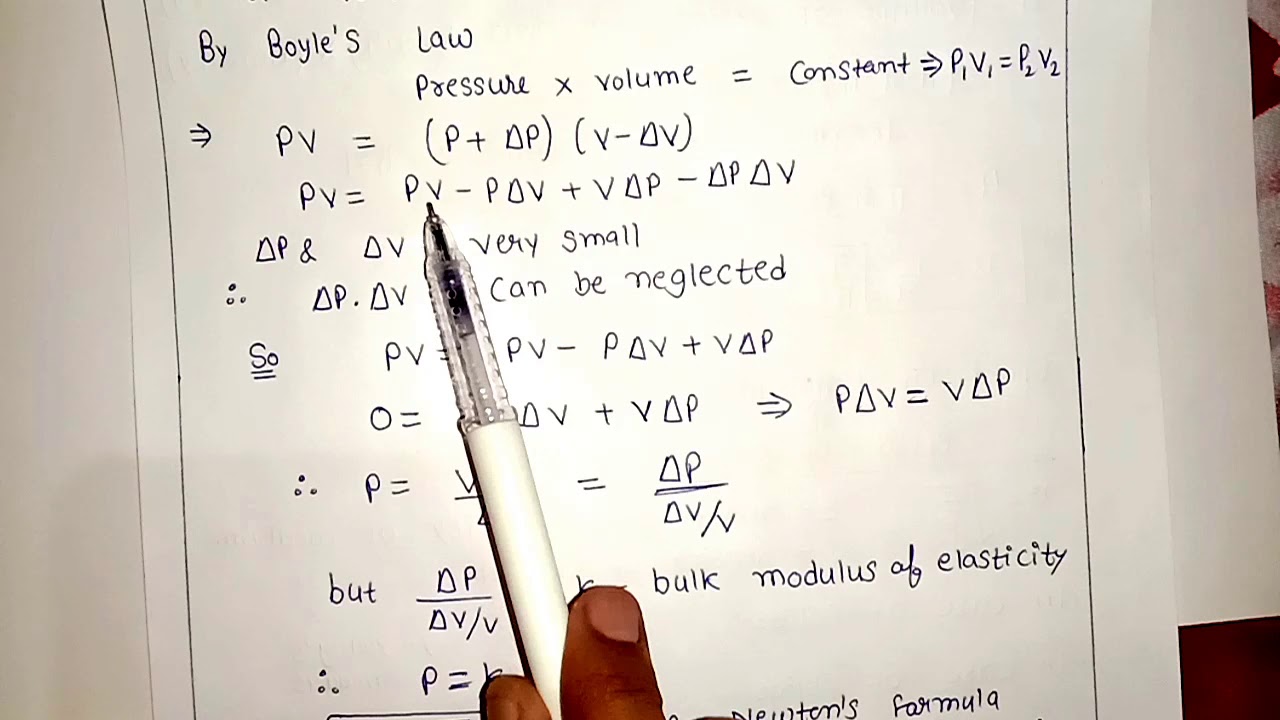 By Boyle's Law
Pressure × volume = Constant ⇒ P₁V₁ = P₂V₂
⇒ PV = (P + ΔP) (V - ΔV)
PV = PV - PΔV + VΔP - ΔPΔV
ΔP & ΔV very small
∴ ΔP. ΔV Can be neglected
So PV = PV - PΔV + VΔP
0 = ΔV + VΔP ⇒ PΔV = VΔP
∴ P = V = ΔP / ΔV/V
but ΔP / ΔV/V k bulk modulus of elasticity
∴ P = k
Newton's formula